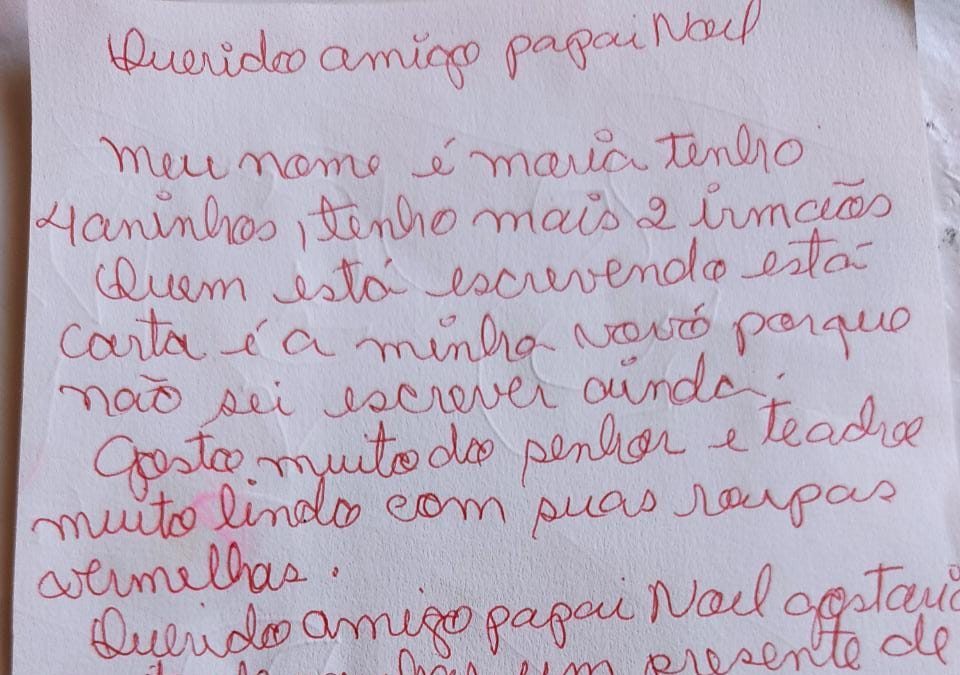 Querido amigo papai Noel
Meu nome é maria tenho
4 aninhos, tenho mais 2 irmãos
Quem está escrevendo está
carta é a minha vovó porque
não sei escrever ainda.
Gosto muito do senhor e te acho
muito lindo com suas roupas
vermelhas.
Querido amigo papai Noel gostaria
um presente de